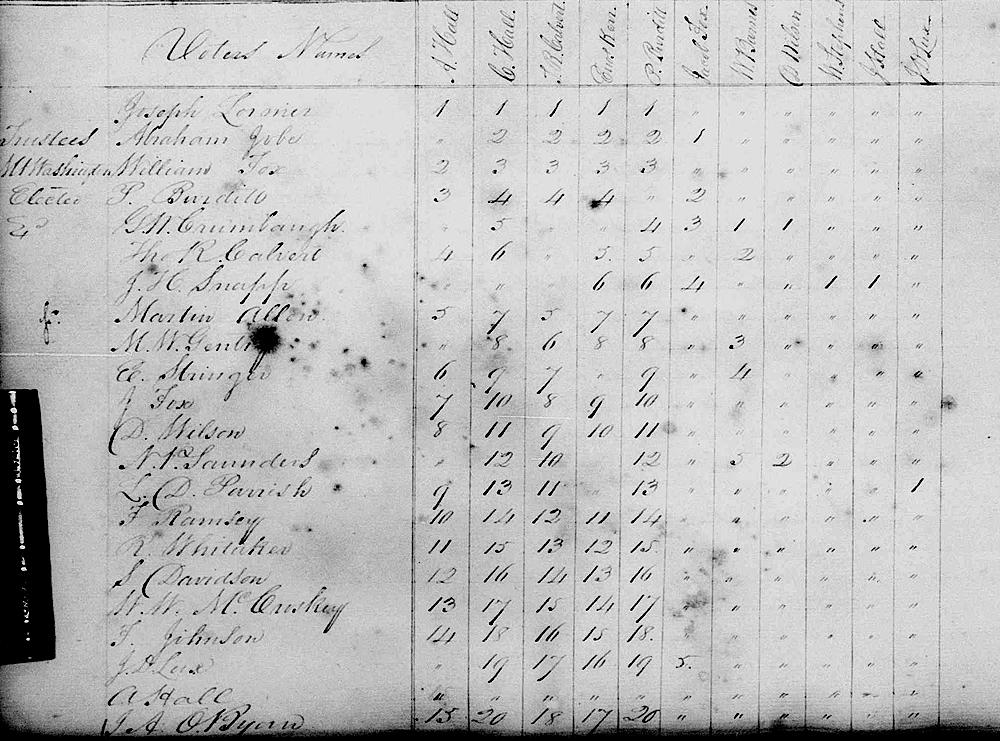 Voters Names A. Hall C. Hall. T. R. Calvert. P. Burditt Jacob Fox. W. Barnes D Wilson W. Stephens J Hall J D Lux
Joseph Lormer 1 1 1 1 1 " " " " " "
Trustees Abraham " 2 2 2 2 1 " " " " "
Mt Washington William Fox 2 3 3 3 3 " " " " " "
Elected P. Burditt 3 4 4 4 " 2 " " " " "
G. W. Crumbaugh. " 5 " " 4 3 1 1 " " "
Tho R. Calvert 4 6 " 5. 5 " 2 " " " "
J. H. Snapp " " " 6 6 4 " " 1 1 "
Martin Allen. 5 7 5 7 7 " " " " " "
M. W. " 8 6 8 8 " 3 " " " "
E. Stringer 6 9 7 " 9 " 4 " " " "
J Fox 7 10 8 9 10 " " " " " "
D. Wilson 8 11 9 10 11 " " " " " "
N. P. Saunders " 12 10 12 " 5 2 " " "
L. D. Parrish 9 13 11 " 13 " " " " " 1
F Ramsey 10 14 12 11 14 " " " " " "
R. Whitaker 11 15 13 12 15 " " " " " "
S. Davidson 12 16 14 13 16 " " " " " "
W. W. McCruskey 13 17 15 14 17 " " " " " "
T. Johnson 14 18 16 15 18. " " " " " "
J. D. Lux " 19 17 16 19 5. " " " " "
A Hall " " " " " " " " " " "
J. A. O. Byorn 15 20 18 17 20 " " " " " "